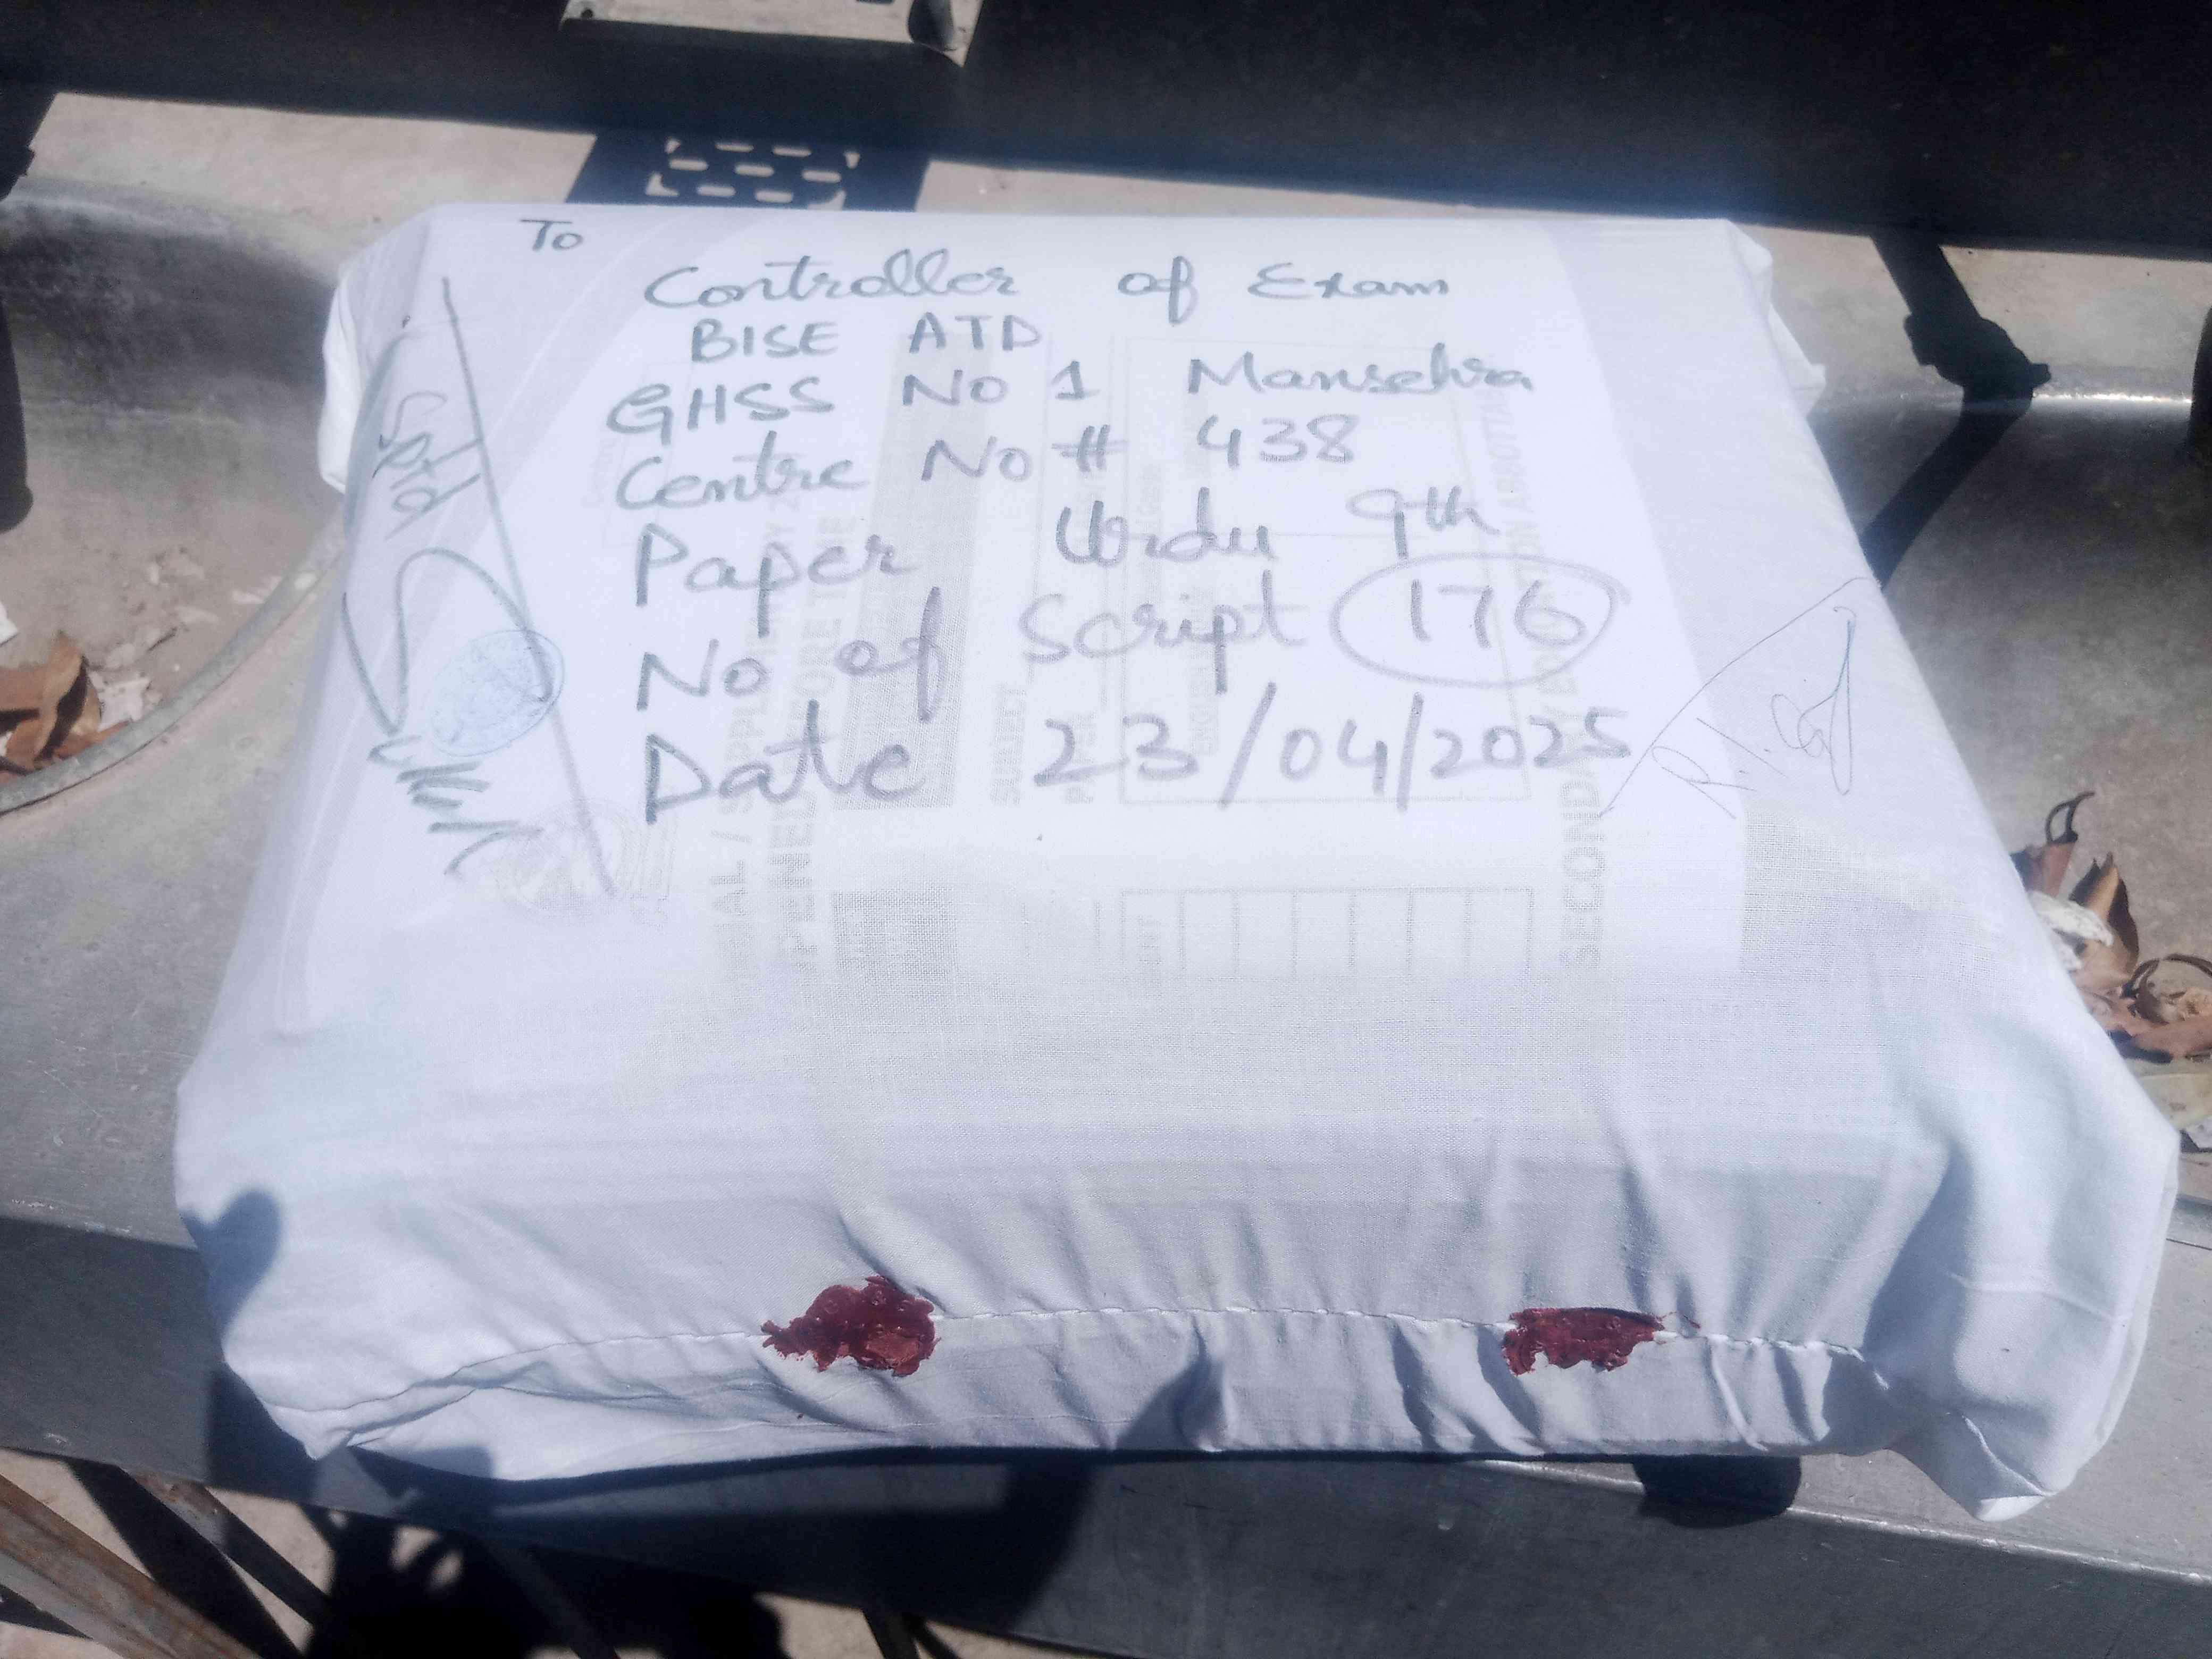 To
Controller of Exam
BISE ATD
GHSS No 1 Mansehra
Centre No # 438
Paper Urdu 9th
No of Script 176
Date 23/04/2025
Sptd
R.I.
SECONDARY EDUCATION ABBOTTA